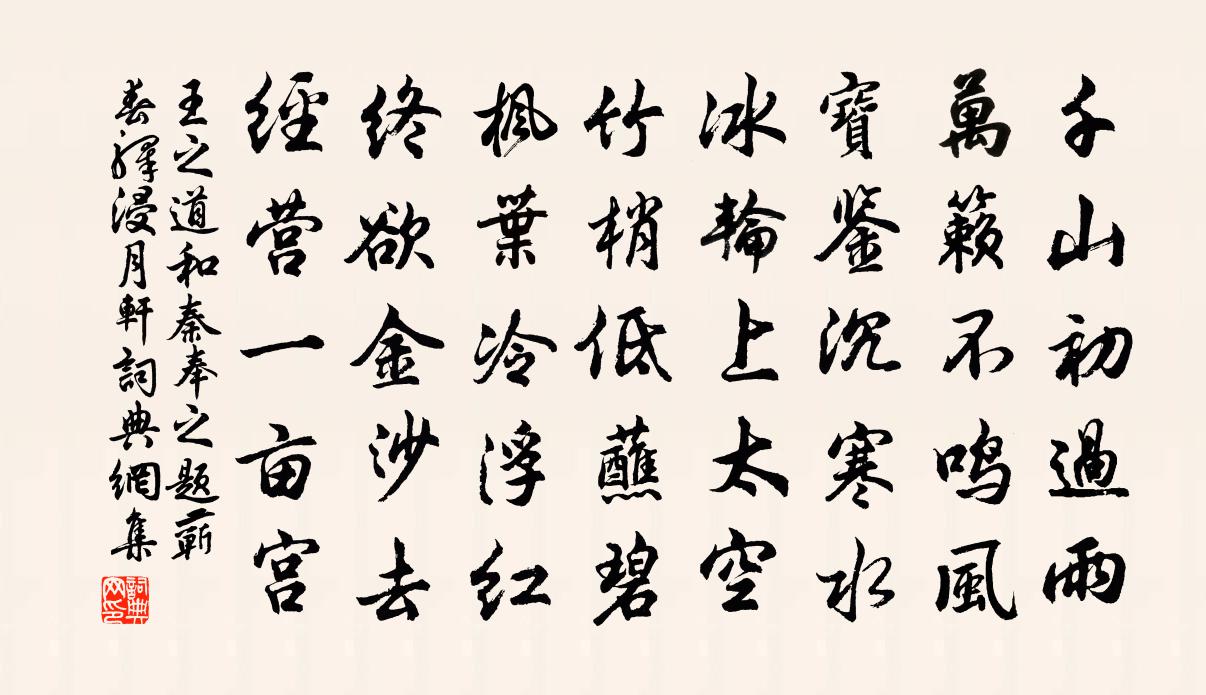 千山初過雨
萬籟不鸣風
寶鉴沉寒水
冰輪上太空
竹梢低蘸碧
楓葉冷浮红
终欲金沙去
經营一亩宫
王之道和秦奉之題蕲
春驛浸月軒詞典網集
詞典网印